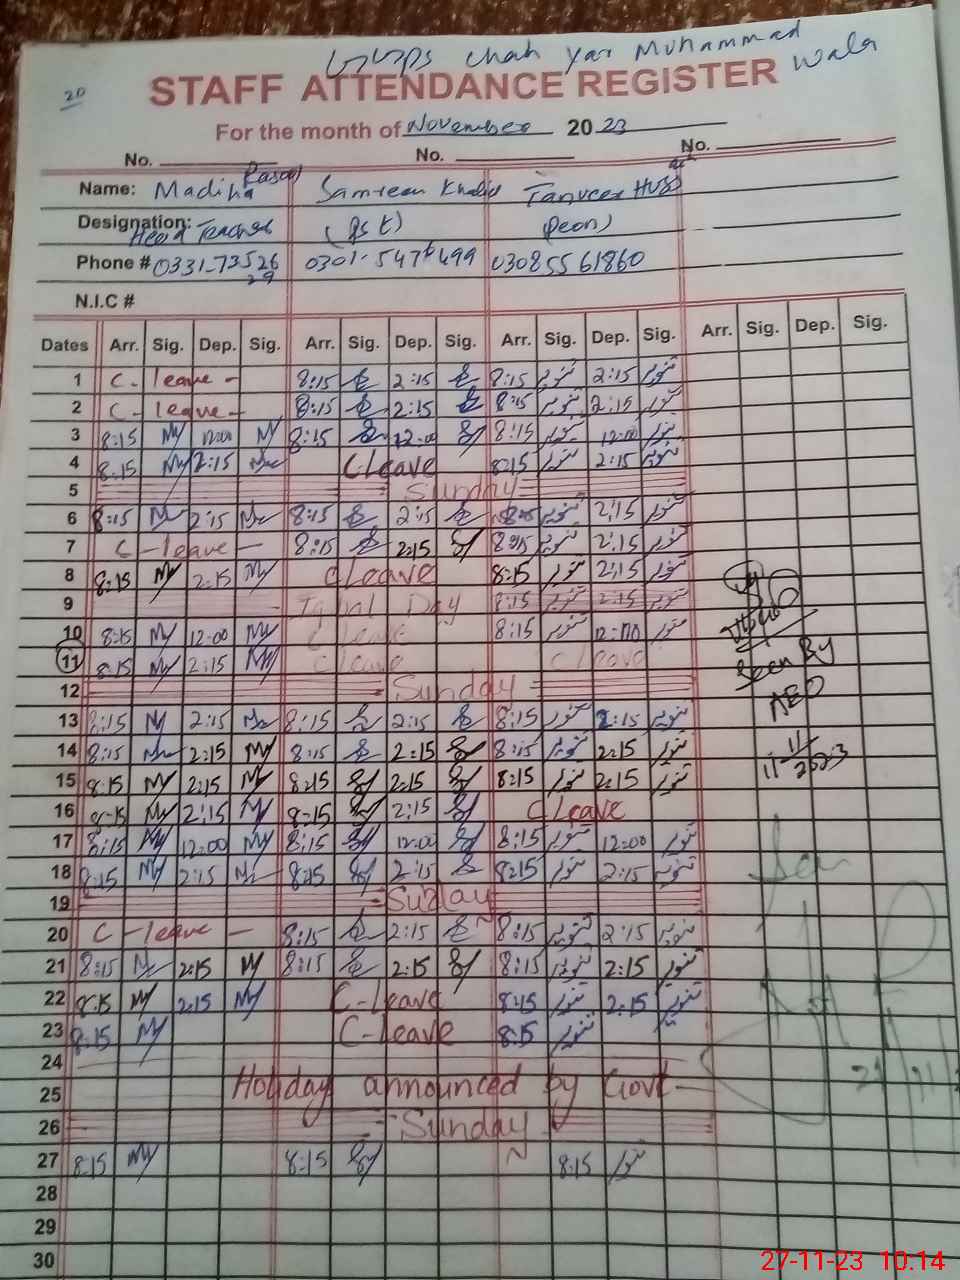 GGPS chah yar Muhammad wala
20
STAFF ATTENDANCE REGISTER
For the month of November 2023
No. No. No.
Name: Madiha Rasool Samreen Khalid Tanveer
Designation: Head Teacher (Pst) (Peon)
Phone # 0331-7352629 0301-5476499 03085561860
N.I.C #
Dates Arr. Sig. Dep. Sig. Arr. Sig. Dep. Sig. Arr. Sig. Dep. Sig. Arr. Sig. Dep. Sig.
1 C-leave- 8:15 2:15 8:15 تنویر 2:15 تنویر
2 C-leave- 8:15 2:15 8:15 تنویر 2:15 تنویر
3 8:15 12:00 8:15 12:00 8:15 تنویر 12:00 تنویر
4 8:15 2:15 C Leave 8:15 تنویر 2:15 تنویر
5 Sunday
6 8:15 2:15 8:15 2:15 8:15 تنویر 2:15 تنویر
7 C-leave- 8:15 2:15 8:15 تنویر 2:15 تنویر
8 8:15 2:15 C Leave 8:15 تنویر 2:15 تنویر
9 Iqbal Day 8:15 تنویر 2:15 تنویر
10 8:15 12:00 C Leave 8:15 تنویر 12:00 تنویر
11 8:15 2:15 C Leave C Leave
Seen By
12 Sunday
AEO
13 8:15 2:15 8:15 2:15 8:15 تنویر 2:15 تنویر
14 8:15 2:15 8:15 2:15 8:15 تنویر 2:15 تنویر
11-11-2023
15 8:15 2:15 8:15 2:15 8:15 تنویر 2:15 تنویر
16 8:15 2:15 8:15 2:15 C Leave
17 8:15 12:00 8:15 12:00 8:15 تنویر 12:00 تنویر
18 8:15 2:15 8:15 2:15 8:15 تنویر 2:15 تنویر
19 Sunday
20 C-leave- 8:15 2:15 8:15 تنویر 2:15 تنویر
21 8:15 2:15 8:15 2:15 8:15 تنویر 2:15 تنویر
22 8:15 2:15 C-Leave 8:15 تنویر 2:15 تنویر
23 8:15 C-Leave 8:15 تنویر
24
25 Holiday announced by Govt
26 Sunday
27 8:15 8:15 8:15 تنویر
28
29
30
27-11-23 10:14